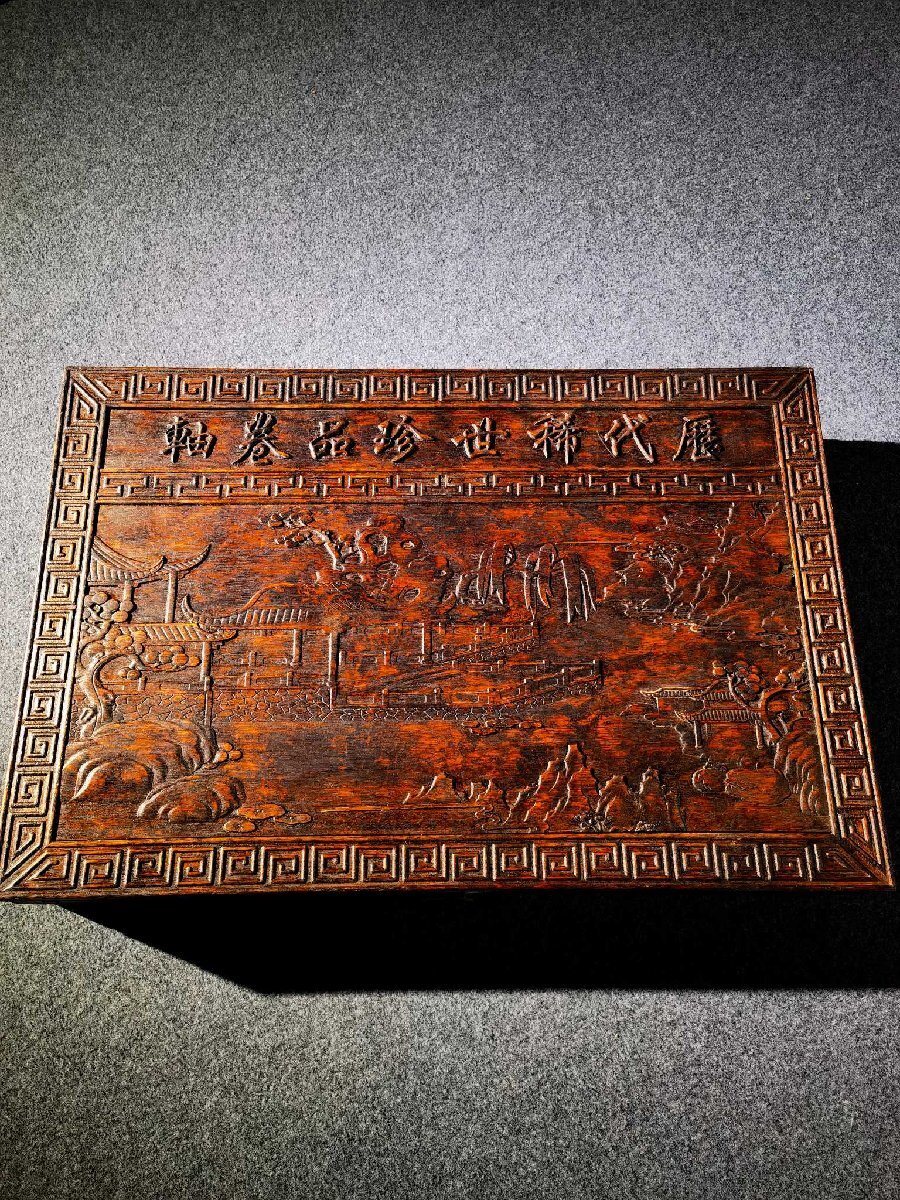 歷代稀世珍品卷軸